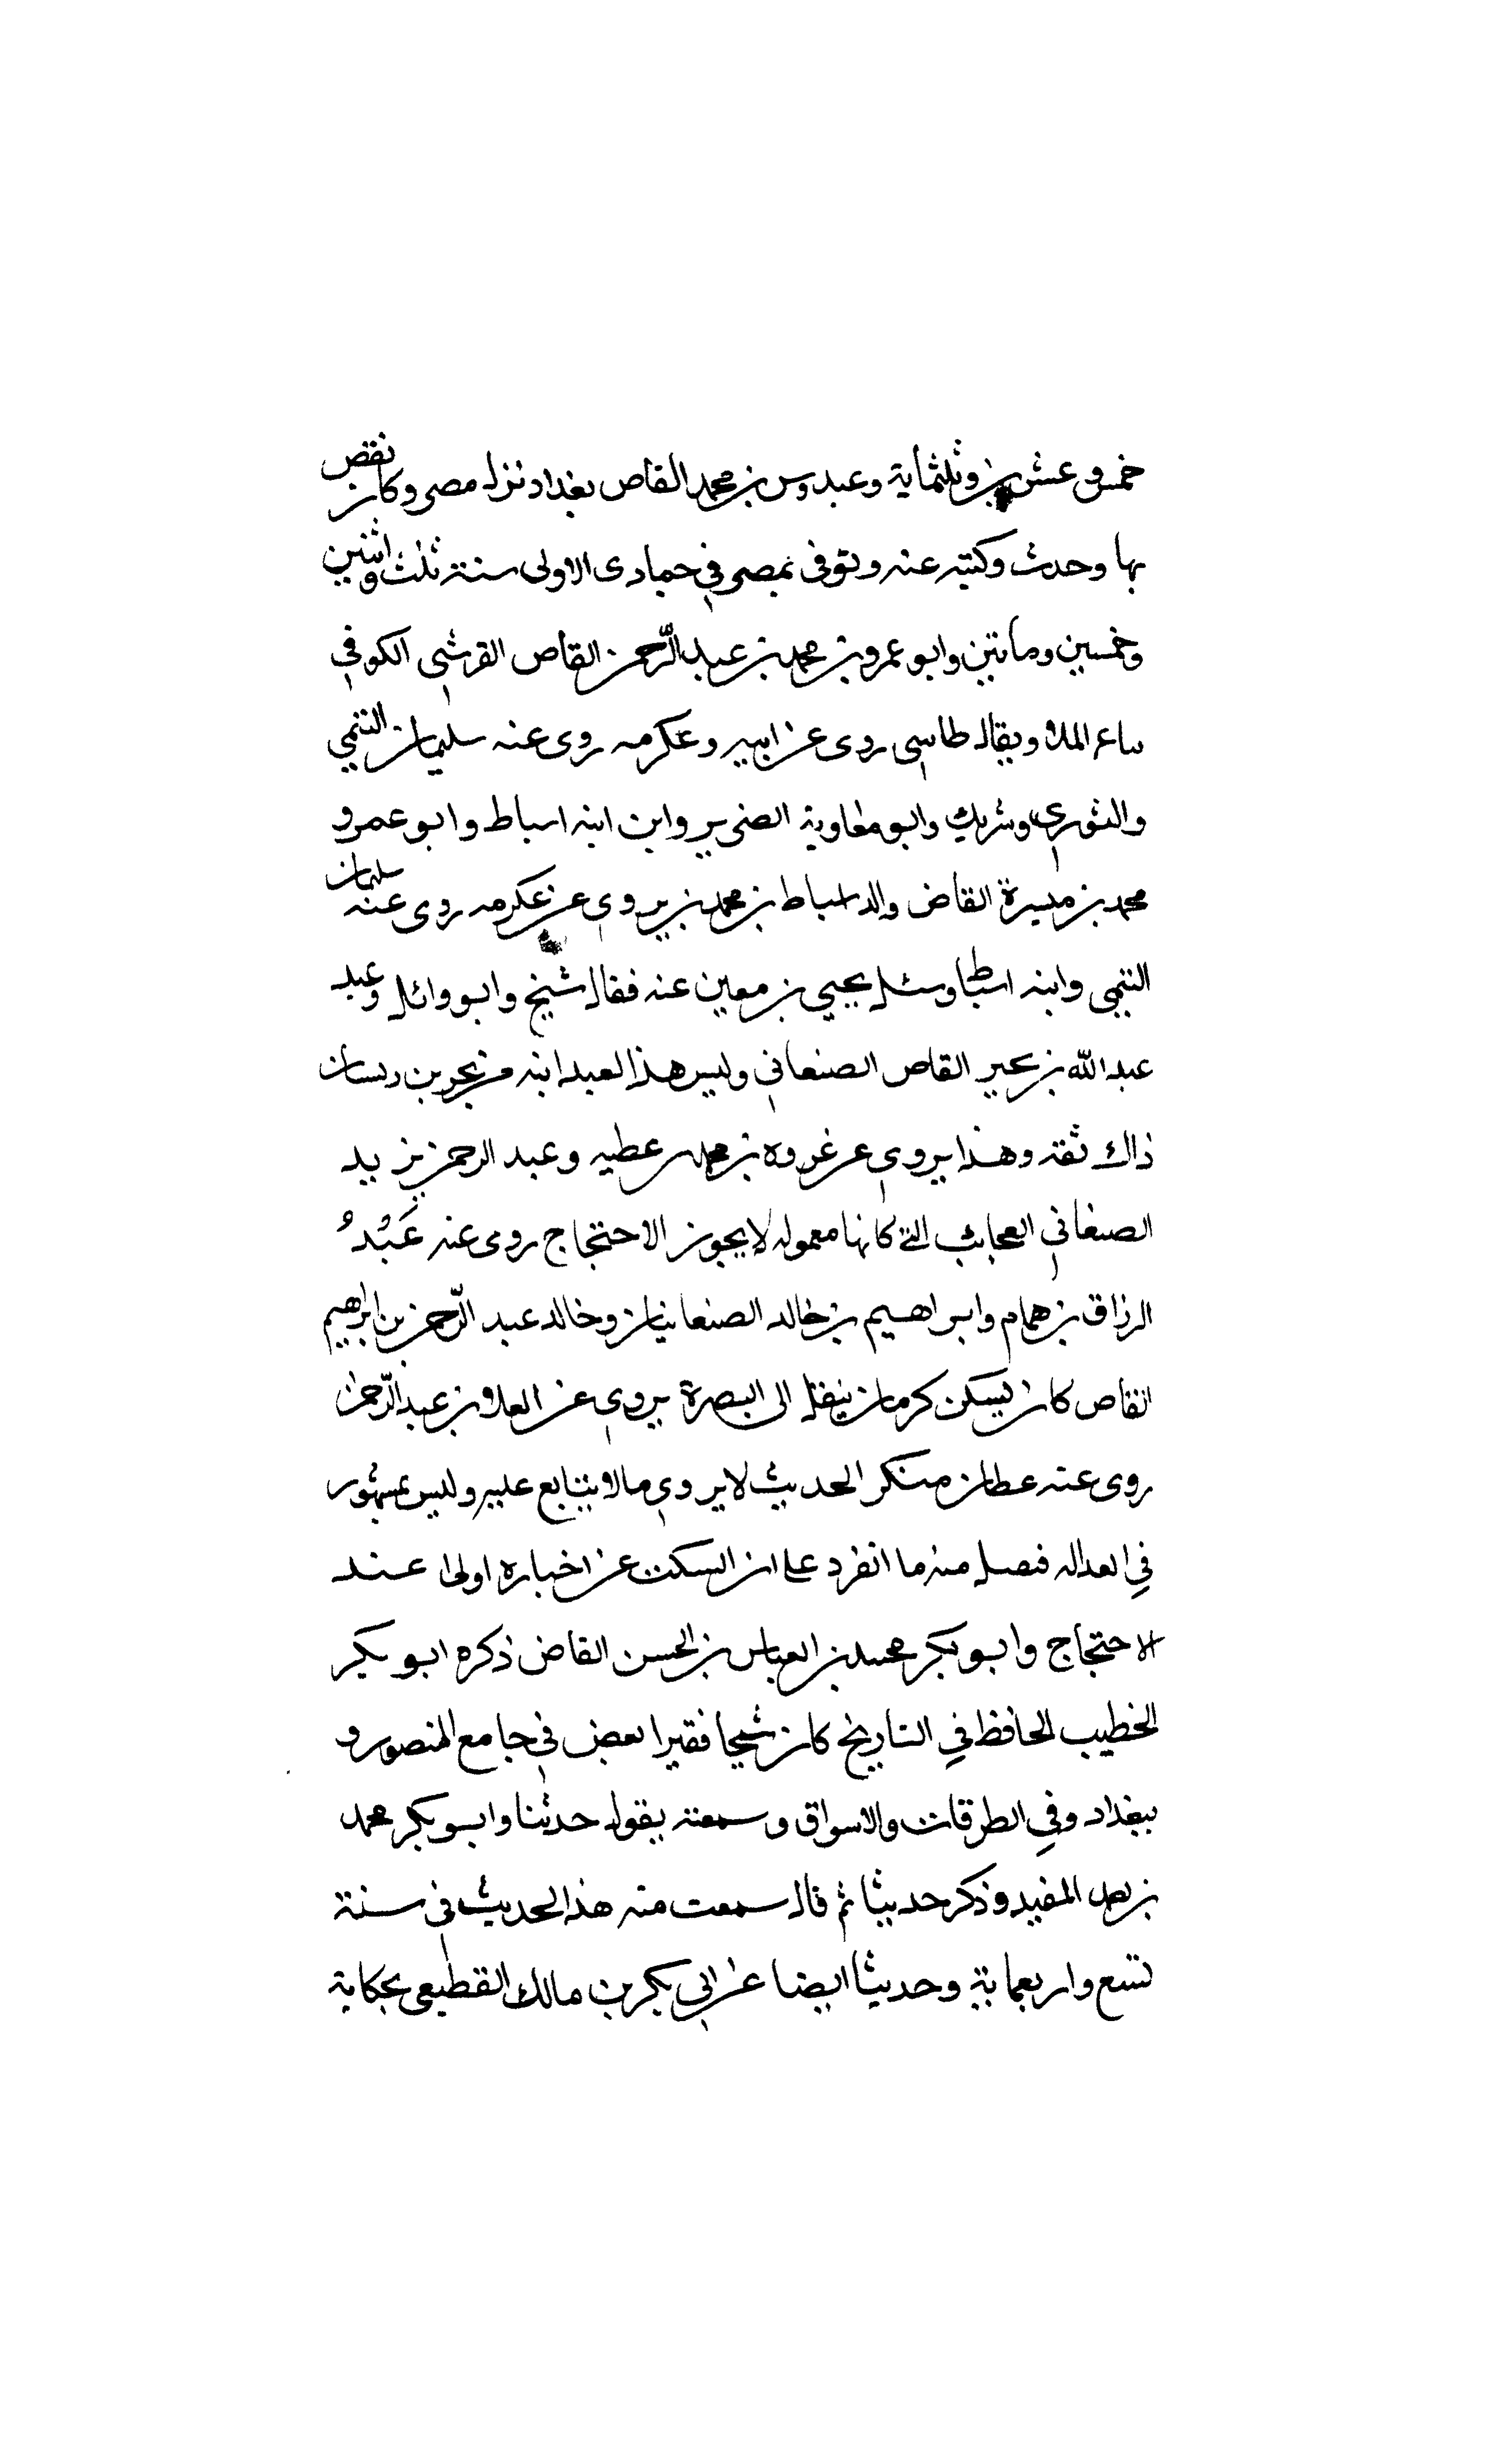 خمس وعشرين وثلثماية وعبدوس بن محمد القاص بغداد نزل مصر وكان يقص
بها وحدث وكتبه عنه وتوفى بمصر في جمادى الاولى سنة ثلث واثنين
وخمسين وماتين وابو عمرو بن محمد بن عبد الرّحمن القاص القرشي الكوفي
الملا ويقال طاسي روى عن ابيه وعكرمه روى عنه سليمان التيمي
والثوري وشريك وابو معاوية الضرير وابن ابنه اسباط وابو عمرو
محمد بن ميسرة القاص والد اسباط بن محمد بن يروي عن عكرمه روى عنه سليمان
التيمي وابنه اسباط وسئل يحيي بن معين عنه فقال شيخ وابو وائل وعبد
عبد الله بن بحير القاص الصنعاني وليس هذا لعبد ابنه من بحير بن ريسان
ذاك ثقه وهذا يروي عن عروه بن محمد بن عطيه وعبد الرحمن بن يزيد
الصنعاني العجايب التي كانها معموله لا يجوز الاحتجاج روى عنه عَبْدُ
الرزاق بن همام وابراهيم بن خالد الصنعانيان وخالد عبد الرّحمن بن ابراهيم
القاص كان يسكن كرمان ينقل الى البصرة يروي عن العلا بن عبد الرّحمن
روى عنه عفان منكر الحديث لا يروي مالا يتتابع عليه وليس بمشهور
في العداله فنصل منه ما انفرد على ان السكت عن اخباره اولى عند
الاحتجاج وابو بكر محمد بن العباس بن الحسن القاص ذكره ابو بكر
الخطيب الحافظ في التاريخ كان شيخا فقيرا يقص في جامع المنصور و
ببغداد وفي الطرقات والاسواق وسمعته يقول حدثنا وابو بكر محمد
بن المفيد وذكر حديثا ثم قال سمعت منه هذا الحديث في سنة
تسع واربعماية وحديثا ايضا عن ابي بكر بن مالك القطيعي بحكاية